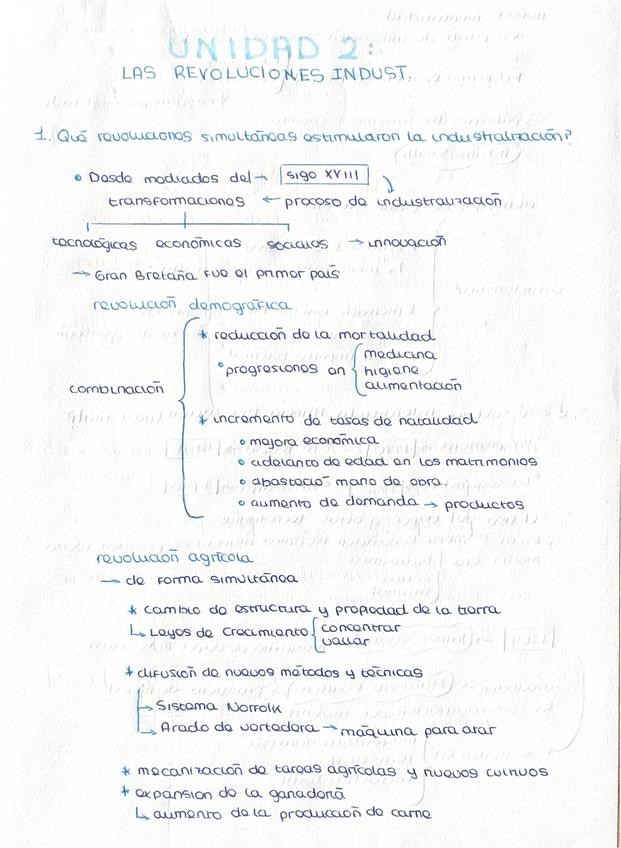 UNIDAD 2:
LAS REVOLUCIONES INDUST.
1. Qué revoluciones simultáneas estimularon la industralización?
• Desde mediados del → sigo XVIII
transformaciones ← proceso de industraulización
tecnológicas económicas sociales → innovación
→ Gran Bretaña fue el primer país
revolución demográfica
combinación
* reducción de la mortalidad
• progresiones en
medicina
higiene
alimentación
* incremento de tasas de natalidad
• mejora económica
• adelanto de edad en los matrimonios
• abasteció mano de obra.
• aumento de demanda → productos
revolución agrícola
→ de forma simultánea
* cambio de estructura y propiedad de la tierra
↳ Leyes de Crecimiento
concentrar
vallar
* difusión de nuevos métodos y técnicas
→ Sistema Norfolk
→ Arado de vertedera → máquina para arar
* mecanización de tareas agrícolas y nuevos cultivos
* expansion de la ganadería
↳ aumento de la producción de carne